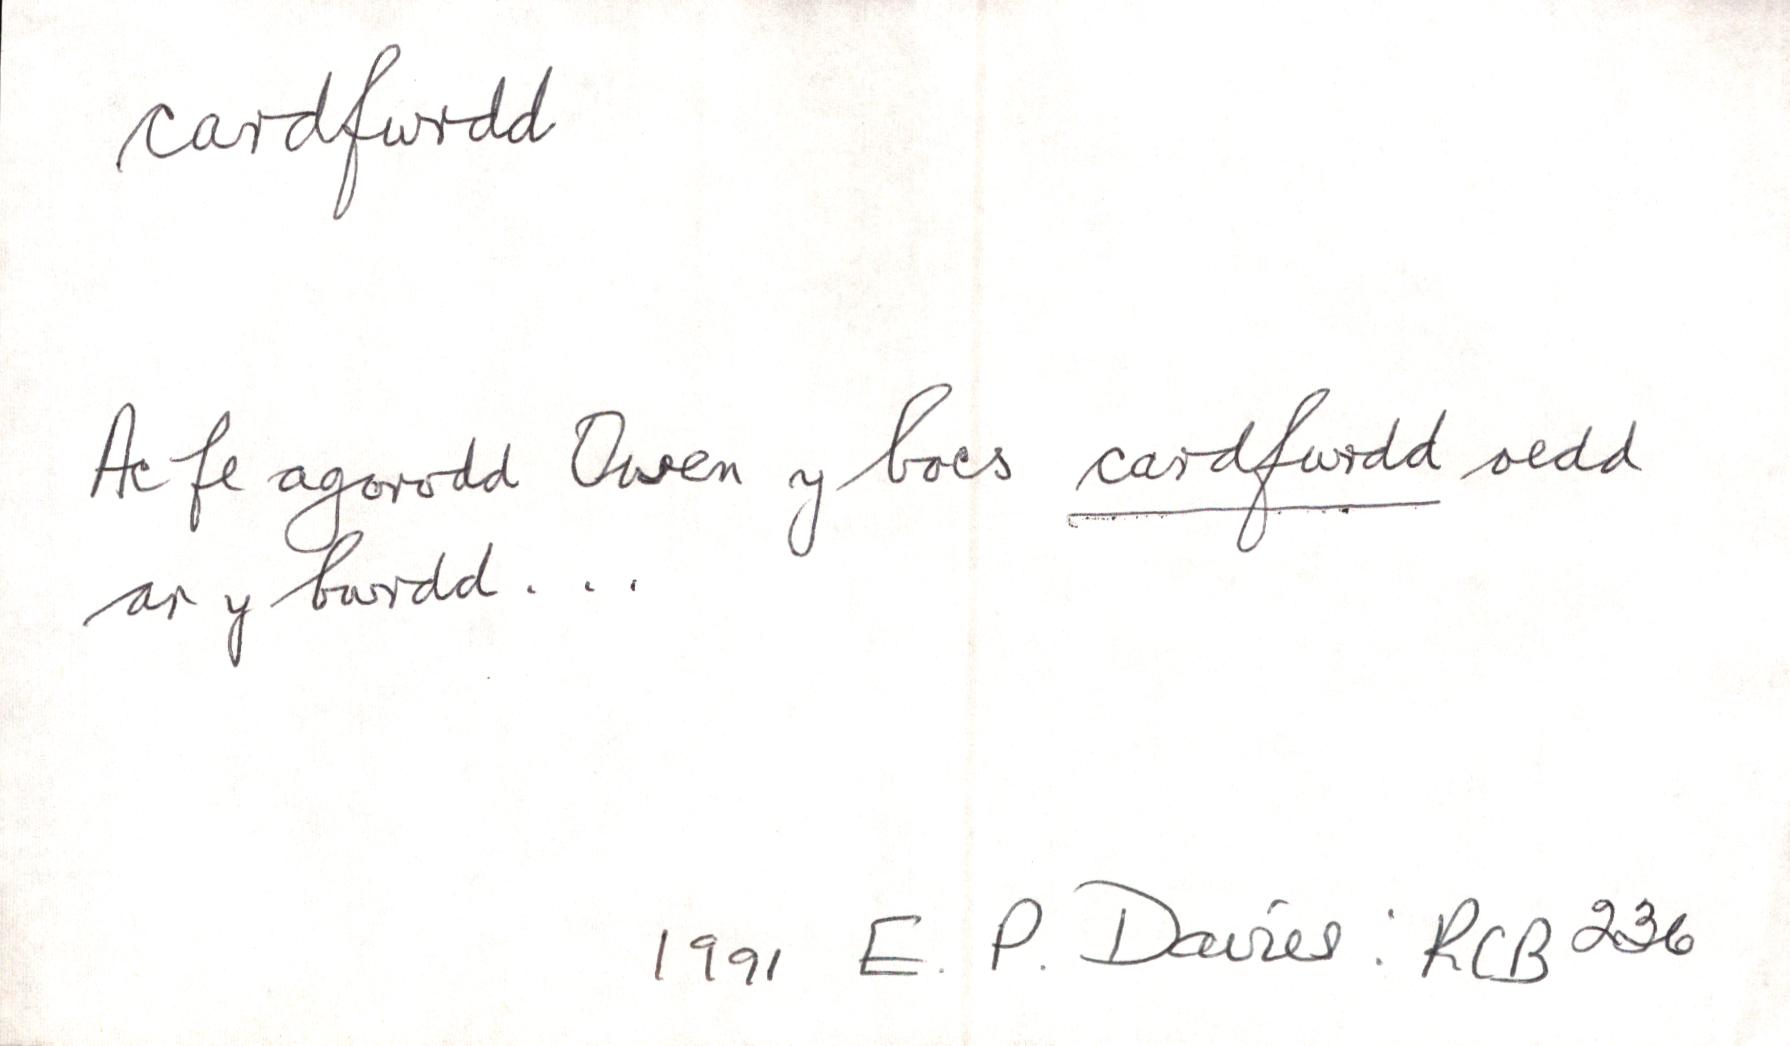 cardfwrdd
Ac fe agorodd Owen y bocs cardfwrdd oedd
ar y bwrdd . . .
1991 E. P. Davies : RCB 236